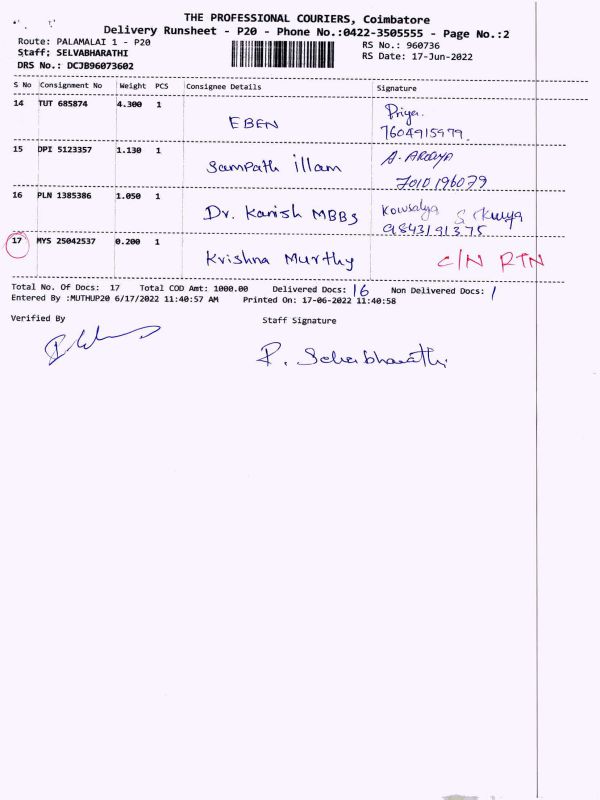 THE PROFESSIONAL COURIERS, Coimbatore
Delivery Runsheet - P20 - Phone No.:0422-3505555 - Page No.:2
Route: PALAMALAI 1 - P20 RS No.: 960736
Staff; SELVABHARATHI RS Date: 17-Jun-2022
DRS No.: DCJB96073602
S No Consignment No Weight PCS Consignee Details Signature
14 TUT 685874 4.300 1 EBEN Priya.
7604915979.
15 DPI 5123357 1.130 1 Sampath illam A.
7010196079
16 PLN 1385386 1.050 1 Dr. Kanish MBBS Kowsalya
9843191375
17 MYS 25042537 0.200 1 Krishna Murthy C/N RTN
Total No. Of Docs: 17 Total COD Amt: 1000.00 Delivered Docs: 16 Non Delivered Docs: 1
Entered By :MUTHUP20 6/17/2022 11:40:57 AM Printed On: 17-06-2022 11:40:58
Verified By Staff Signature
P. Selvabharathi